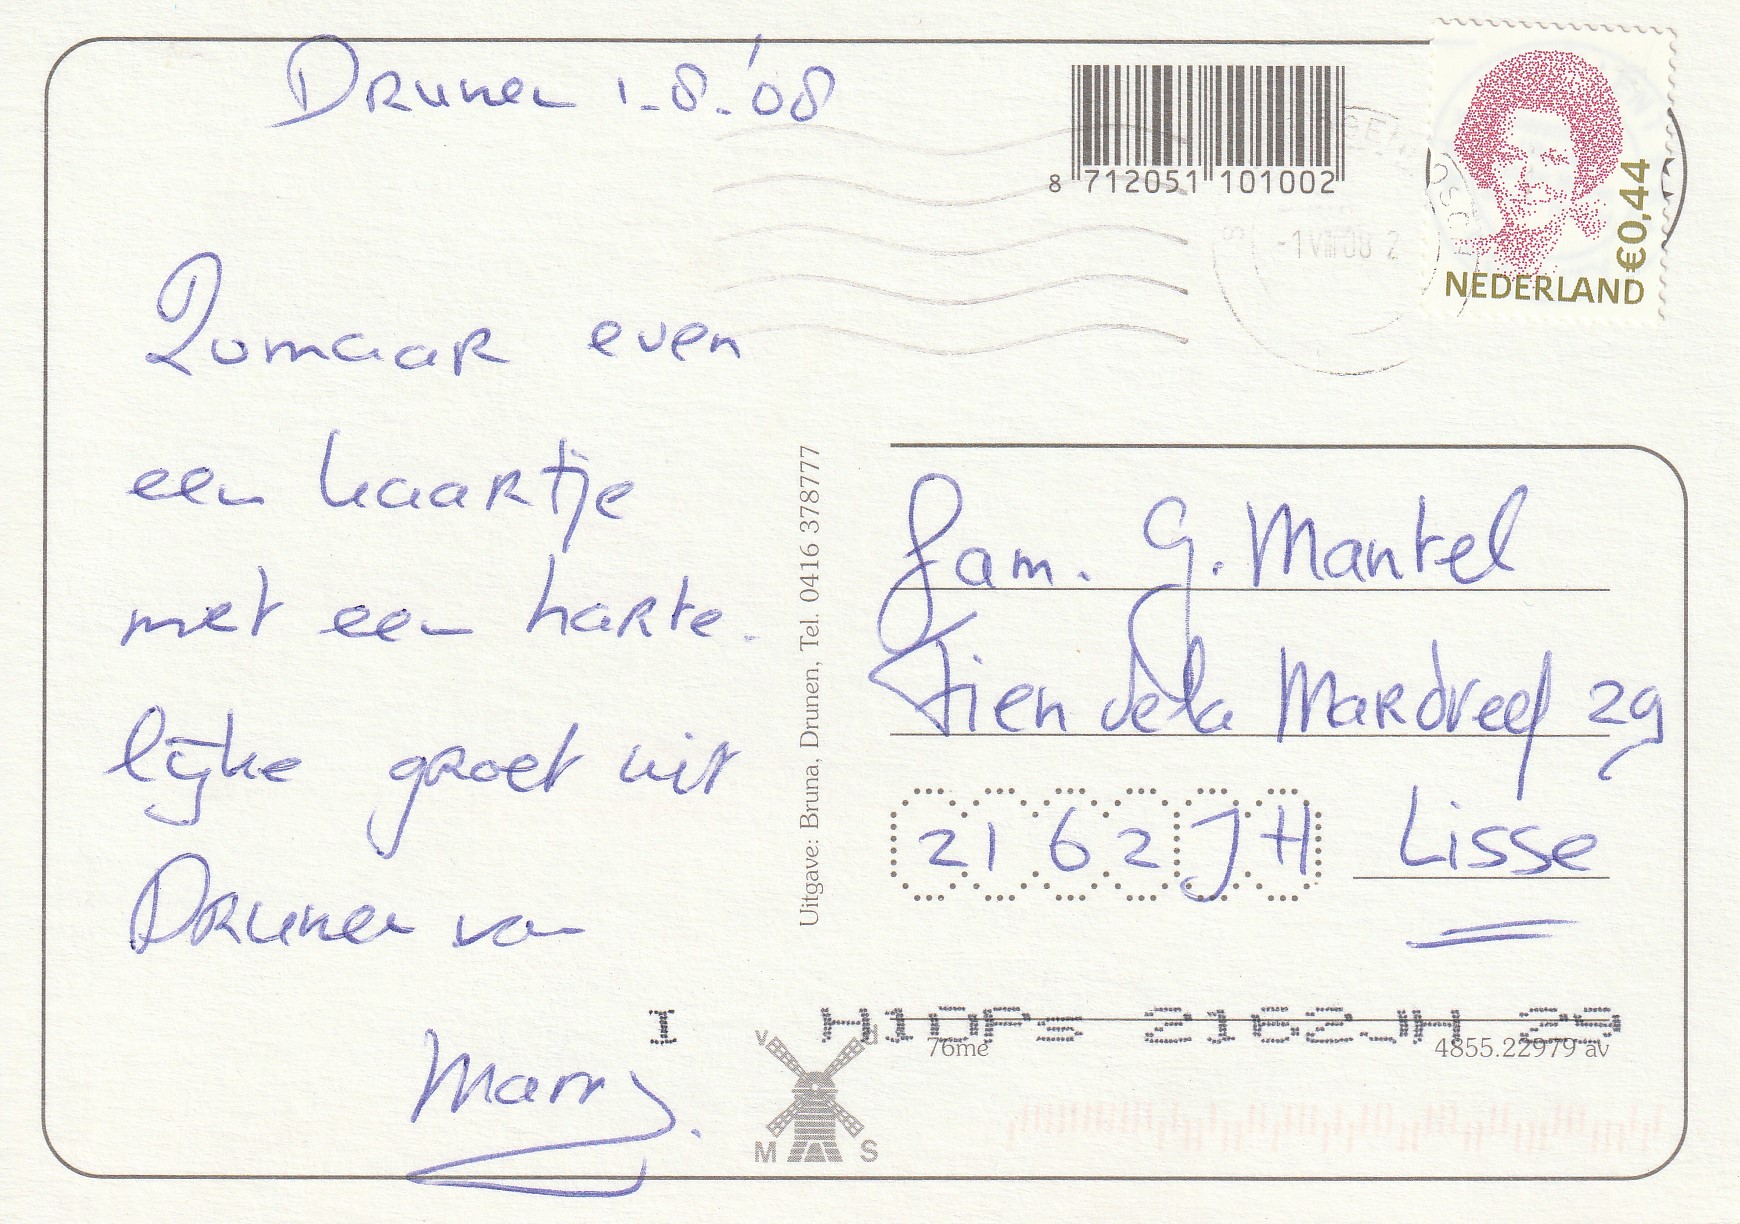 Drunen 1-8-'08
8 712051 101002
-1 VIII 08 2
€0,44
NEDERLAND
Zomaar even
een kaartje
met een harte-
lijke groet uit
Drunen van
Marry.
Uitgave: Bruna, Drunen, Tel. 0416 378777
fam. G. Mantel
Tien de la Mardreef 29
2162JH Lisse
I H10Ps 2162JH 29
76me
4855.22979 av
v d
M S